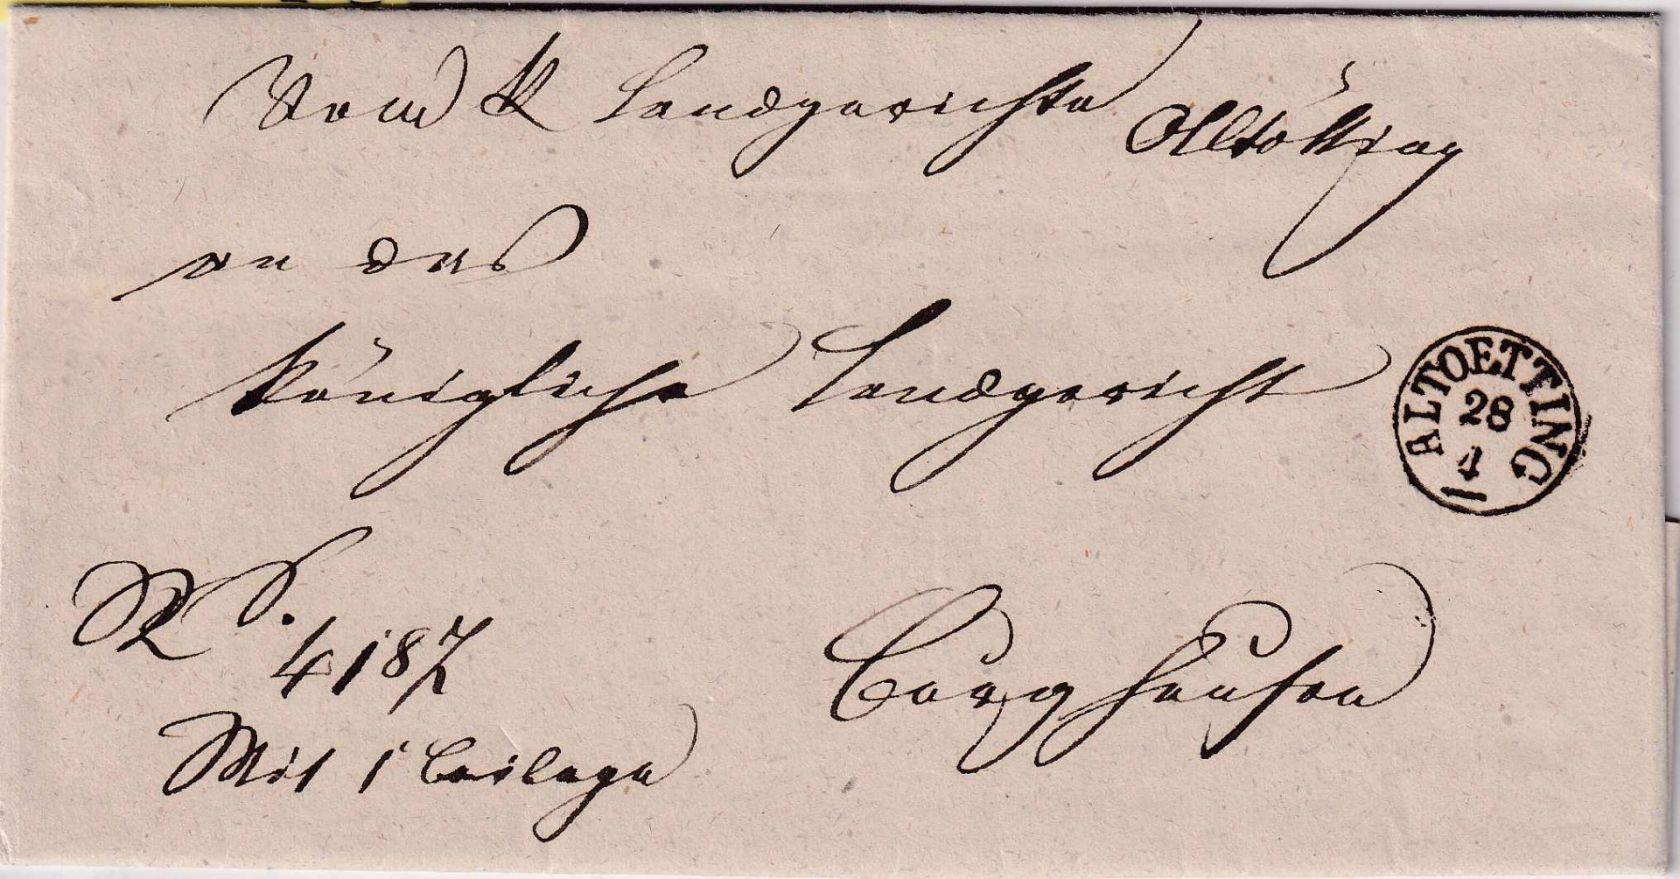 Vom K Landgerichte Altötting
an das
Königliche Landgericht
ALTOETTING
28
4
R. S.
4187
Burghausen
Mit 1 Beilage